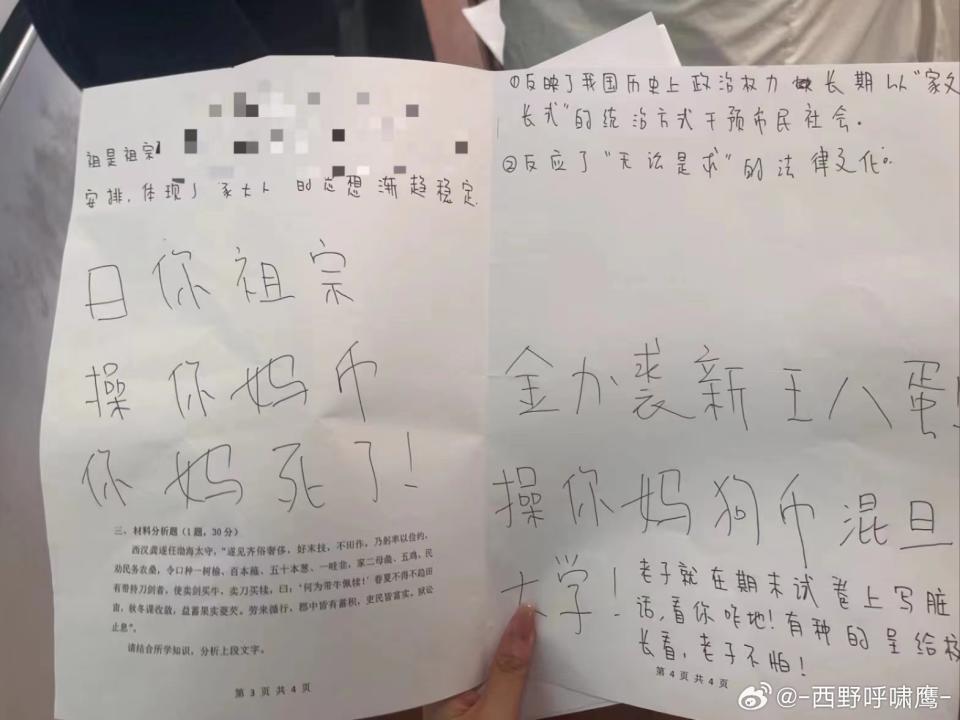 祖是祖宗
安排,体现了 家士人 的思想 渐趋稳定.
日你祖宗
操你妈币
你妈死了!
三、材料分析题(1题,30分)
西汉龚遂任渤海太守,“遂见齐俗奢侈,好末技,不田作,乃躬率以俭约,
劝民务农桑,令口种一树榆、百本薤、五十本葱、一畦韭,家二母彘、五鸡。民
有带持刀剑者,使卖剑买牛,卖刀买犊,曰:‘何为带牛佩犊!’春夏不得不趋田
亩,秋冬课收敛,益蓄果实菱芡。劳来循行,郡中皆有蓄积,吏民皆富实。狱讼
止息”。
请结合所学知识,分析上段文字。
第 3 页 共 4 页
①反映了我国历史上政治权力 长期以“家父
长式”的统治方式干预市民社会.
②反应了“无讼是求”的法律文化。
金力裘新王八蛋!
操你妈狗币混旦
大学!
老子就在期末试卷上写脏
话,看你咋地!有种的呈给校
长看,老子不怕!
第 4 页 共 4 页
@-西野呼啸鹰-